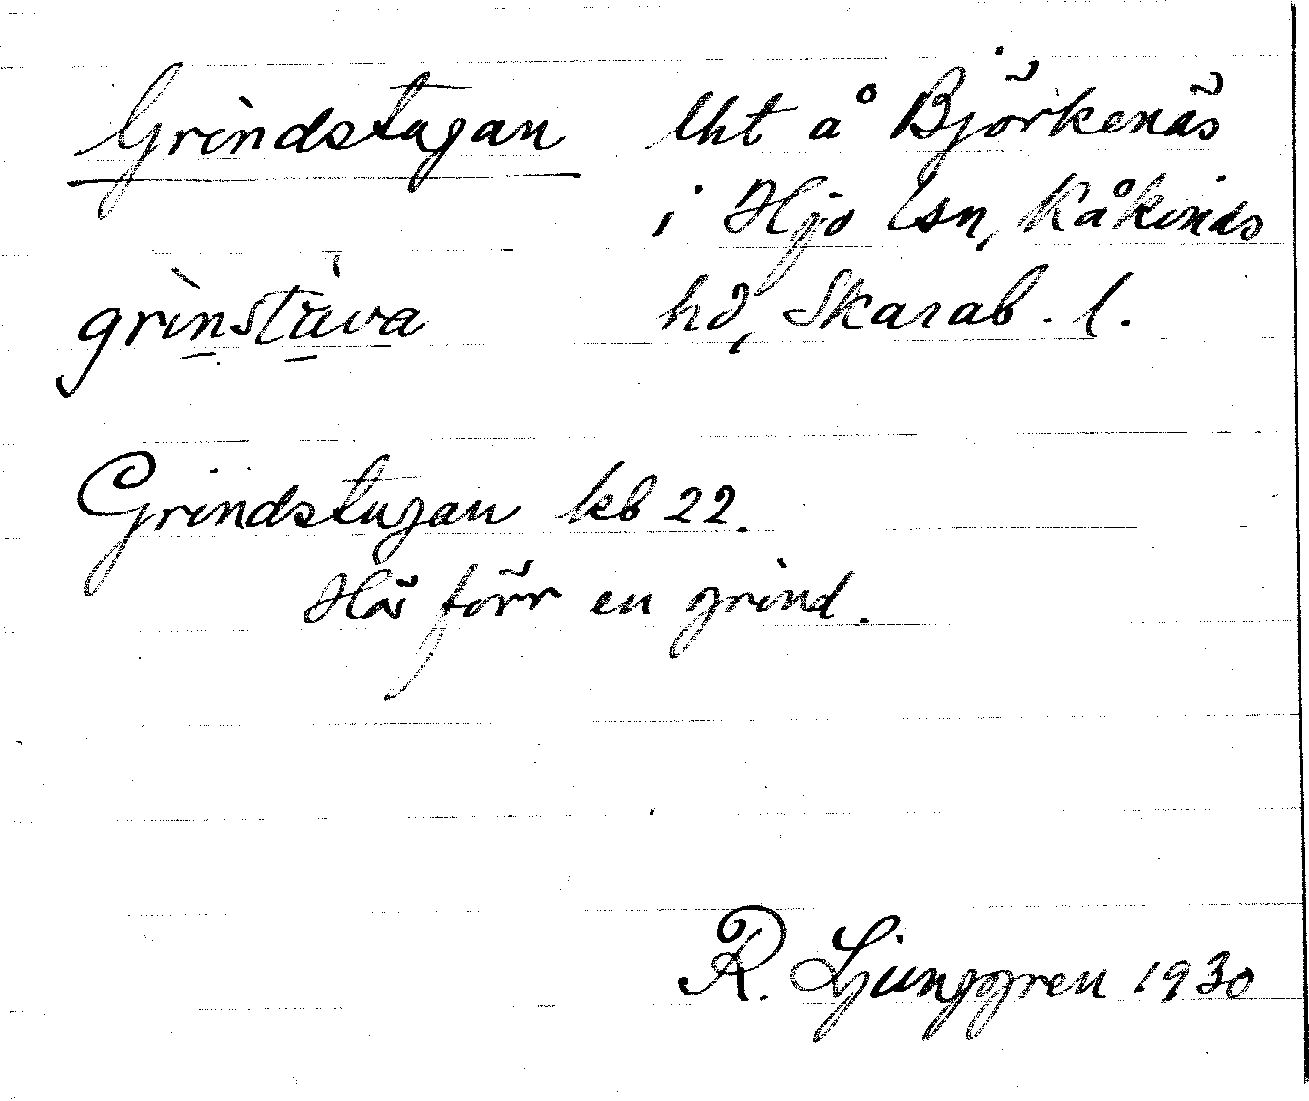 Grindstugan
lht å Björkenäs
i Hjo lsn, Kåkinds
hd, Skarab. l.
grinstàva
Grindstugan kb 22.
Här förr en grind.
R. Ljunggren 1930